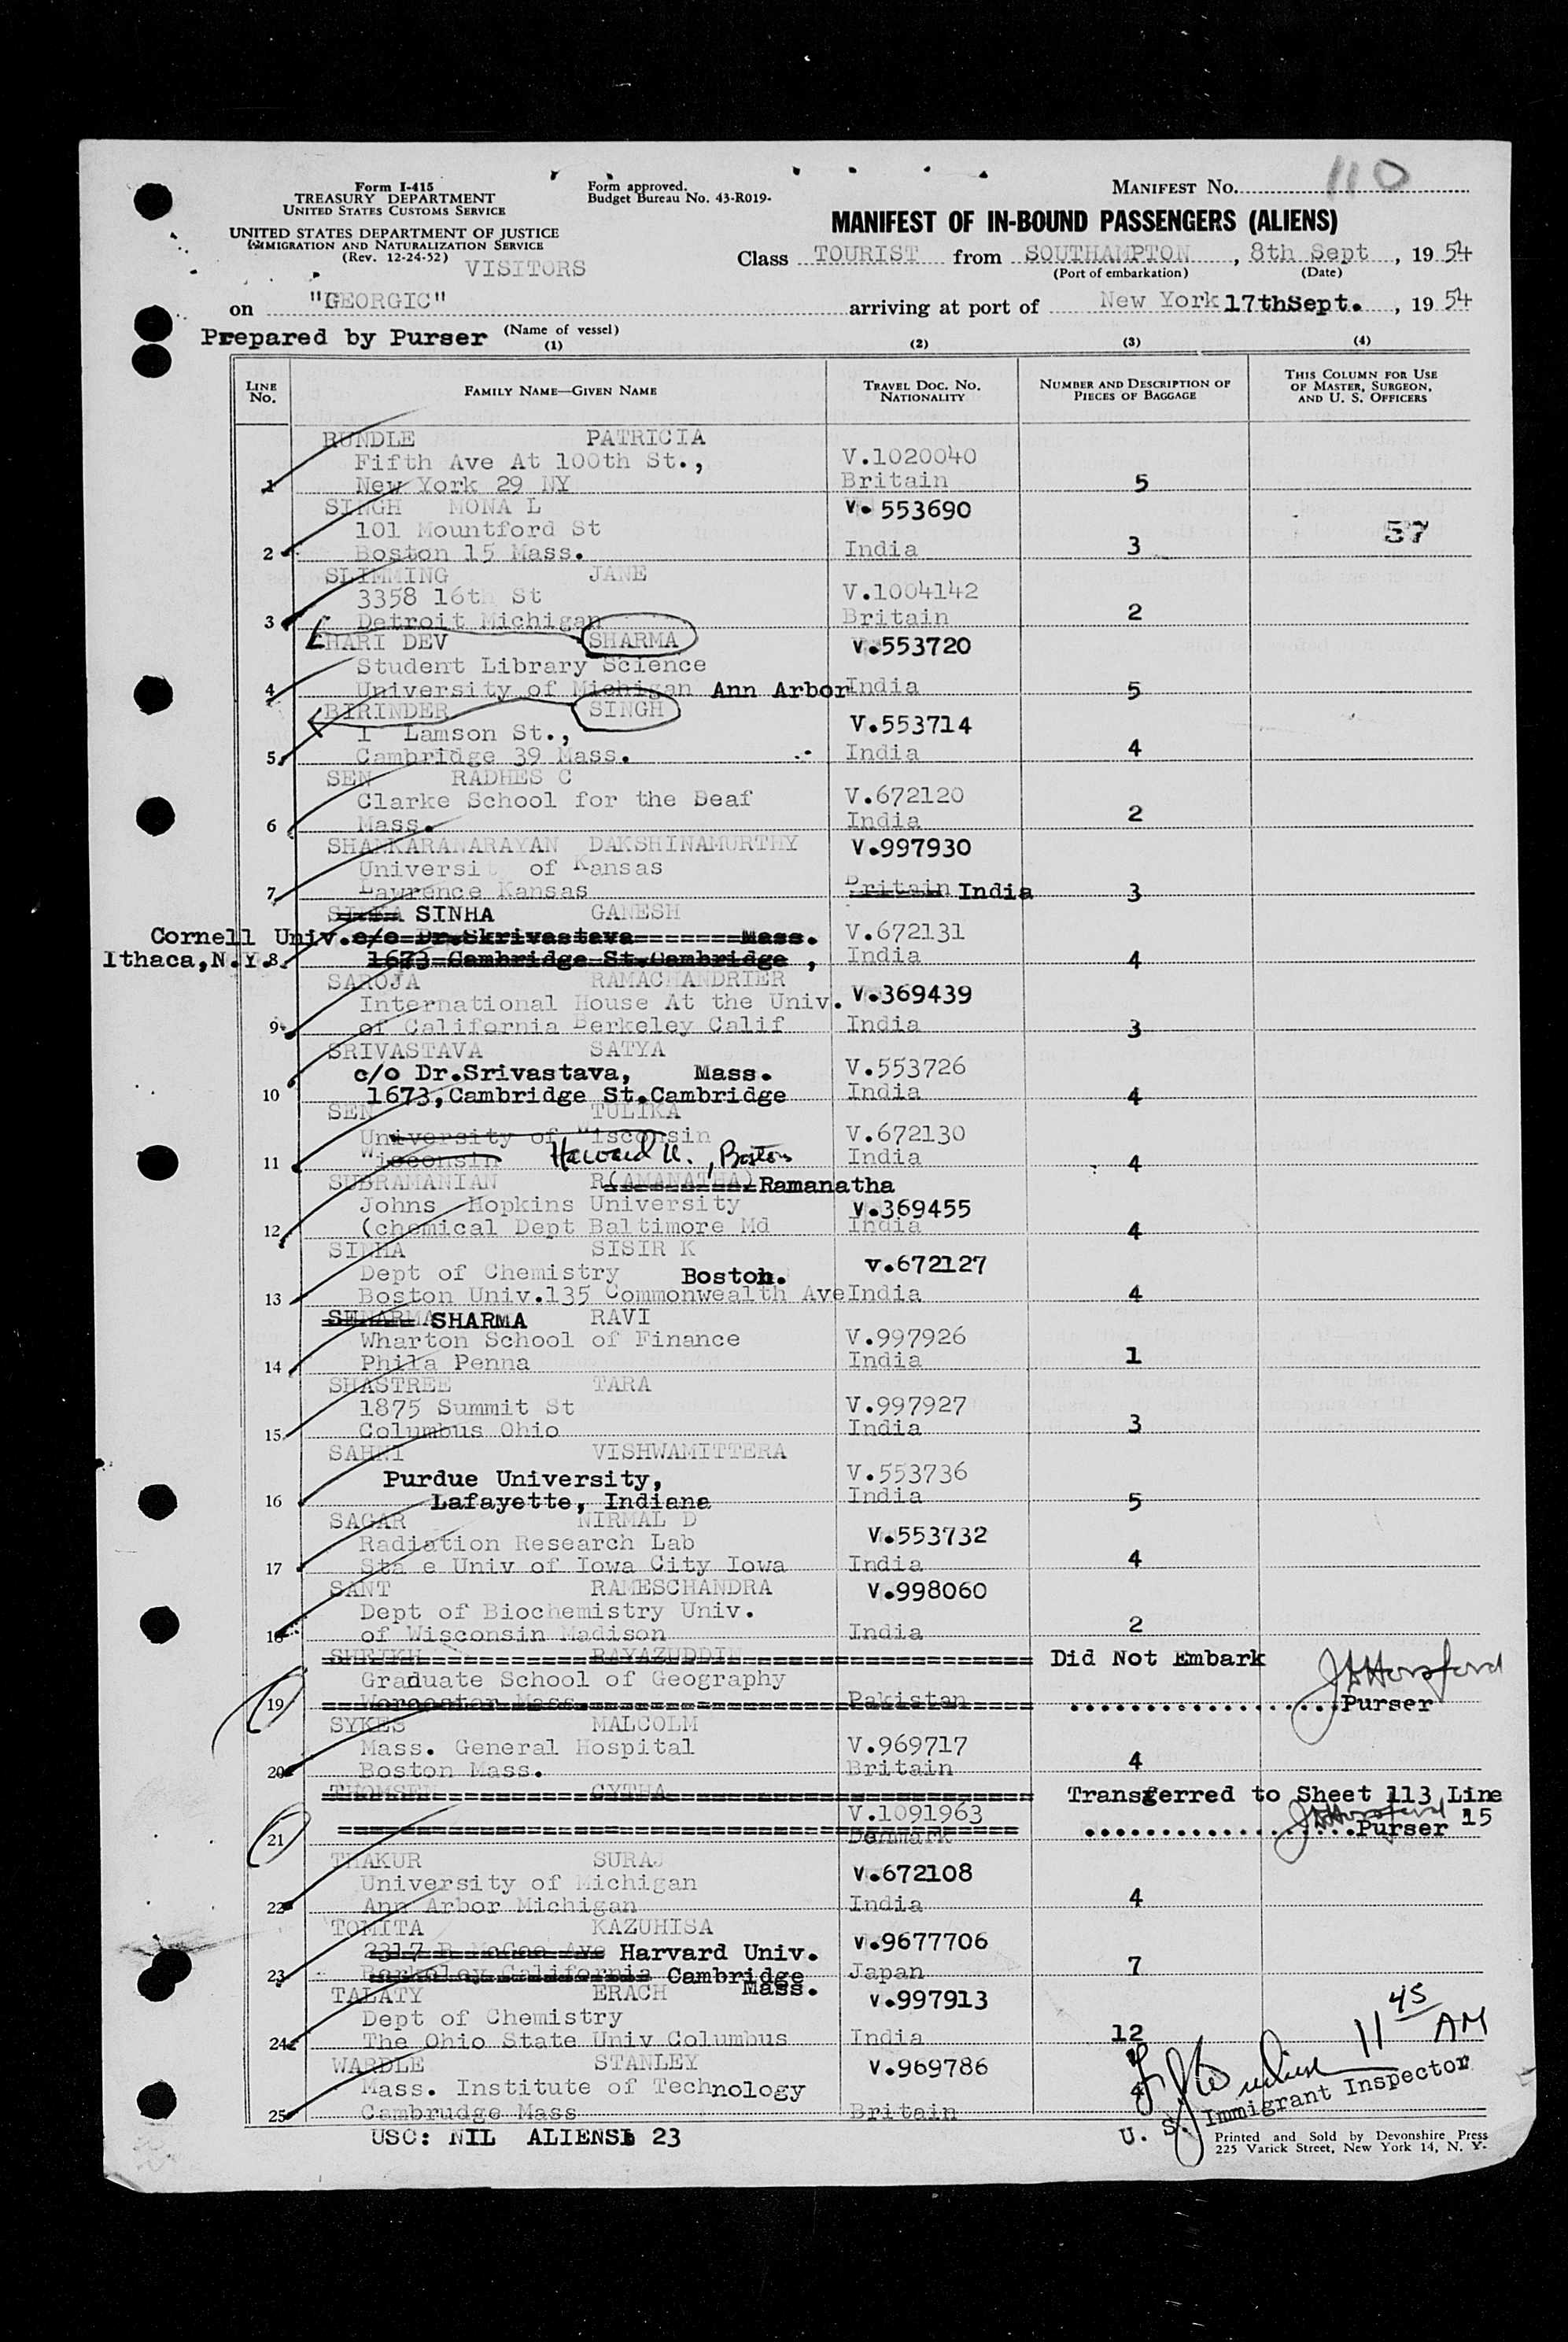 110
Form I-415
TREASURY DEPARTMENT
UNITED STATES CUSTOMS SERVICE
UNITED STATES DEPARTMENT OF JUSTICE
IMMIGRATION AND NATURALIZATION SERVICE
(Rev. 12-24-52)
VISITORS
Form approved.
Budget Bureau No. 43-R019-
MANIFEST No.
MANIFEST OF IN-BOUND PASSENGERS (ALIENS)
Class TOURIST from SOUTHAMPTON, 8th Sept, 1954
(Port of embarkation) (Date)
on "GEORGIC" arriving at port of New York 17thSept., 1954
Prepared by Purser (Name of vessel)
(1) (2) (3) (4)
LINE No.
FAMILY NAME—GIVEN NAME
TRAVEL DOC. No. NATIONALITY
NUMBER AND DESCRIPTION OF PIECES OF BAGGAGE
THIS COLUMN FOR USE OF MASTER, SURGEON, AND U. S. OFFICERS
RUNDLE PATRICIA
Fifth Ave At 100th St., V.1020040
1 New York 29 NY Britain 5
SINGH MONA L V. 553690
101 Mountford St 57
2 Boston 15 Mass. India 3
SLIMMING JANE
3358 16th St V.1004142
3 Detroit Michigan Britain 2
HARI DEV SHARMA V.553720
Student Library Science
4 University of Michigan Ann Arbor India 5
BIRINDER SINGH V.553714
1 Lamson St.,
5 Cambridge 39 Mass. India 4
SEN RADHES C
Clarke School for the Deaf V.672120
6 Mass. India 2
SHANKARANARAYAN DAKSHINAMURTHY V.997930
Universi of Kansas
7 Lawrence Kansas Britain India 3
SINHA GANESH
Cornell Univ. c/o Dr.Skrivastava Mass. V.672131
Ithaca,N.Y. 8 1673 Cambridge St.Cambridge , India 4
SAROJA RAMACHANDRIER
International House At the Univ. V.369439
9 of California Berkeley Calif India 3
SRIVASTAVA SATYA
c/o Dr.Srivastava, Mass. V.553726
10 1673,Cambridge St.Cambridge India 4
SEN TULIKA
University of Wisconsin V.672130
11 Wisconsin Harvard U., Boston India 4
SUBRAMANIAN R(AMANATHA) Ramanatha
Johns Hopkins University V.369455
12 (chemical Dept Baltimore Md India 4
SINHA SISIR K
Dept of Chemistry Boston. V.672127
13 Boston Univ.135 Commonwealth Ave India 4
SHARMA RAVI
Wharton School of Finance V.997926
14 Phila Penna India 1
SHASTREE TARA
1875 Summit St V.997927
15 Columbus Ohio India 3
SAHNI VISHWAMITTERA
Purdue University, V.553736
16 Lafayette, Indiana India 5
SAGAR NIRMAL D
Radiation Research Lab V.553732
17 Sta e Univ of Iowa City Iowa India 4
SANT RAMESCHANDRA V.998060
Dept of Biochemistry Univ.
18 of Wisconsin Madison India 2
SHEIKH RAYAZUDDIN Did Not Embark
Graduate School of Geography
19 Worcester Mass Pakistan Purser
SYKES MALCOLM
Mass. General Hospital V.969717
20 Boston Mass. Britain 4
THOMSEN GYTHA Transferred to Sheet 113 Line 15
V.1091963
21 Denmark Purser
THAKUR SURAJ
University of Michigan V.672108
22 Ann Arbor Michigan India 4
TOMITA KAZUHISA
2317 B McGee Ave Harvard Univ. V.9677706
23 Berkeley California Cambridge Mass. Japan 7
TALATY ERACH V.997913
Dept of Chemistry
24 The Ohio State Univ Columbus India 12
WARDLE STANLEY V.969786
Mass. Institute of Technology 4
25 Cambrudge Mass Britain
11 45 AM
U. S. Immigrant Inspector
USC: NIL ALIENS: 23
Printed and Sold by Devonshire Press
225 Varick Street, New York 14, N. Y.